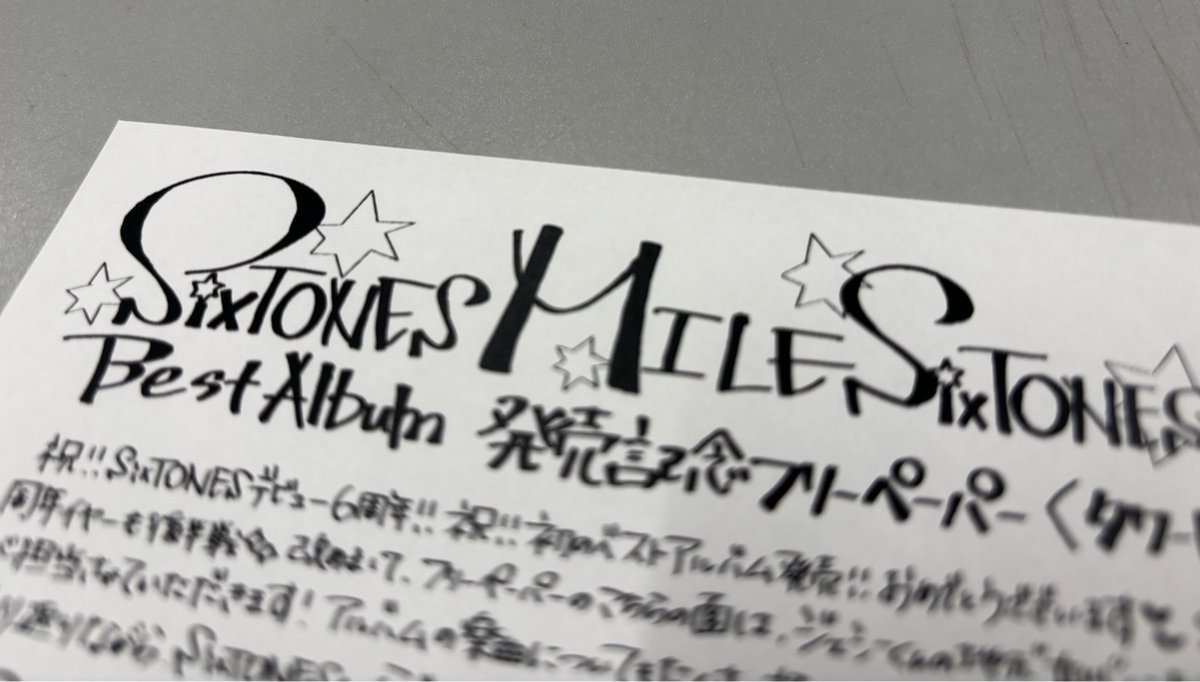 SixTONES MILESixTONES
Best Album 発売記念フリーペーパー〈タワー
祝!!SixTONESデビュー6周年!! 祝!!初のベストアルバム発売!! おめでとうございます
周年イヤーも後半戦 改めまして、フリーペーパーのこちらの面は、ジェシーくんの
担当させていただきます!アルバムの楽曲について
SixTONES